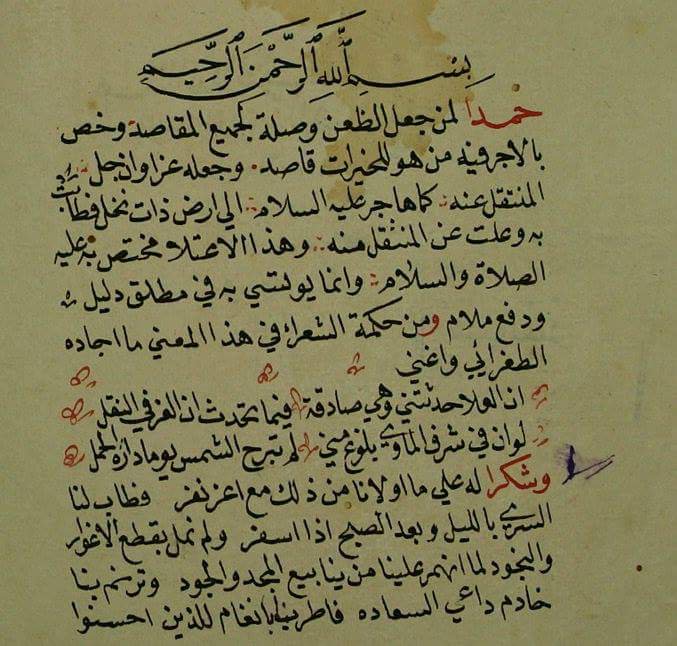 بسم الله الرحمن الرحيم
حمدا لمن جعل الظعن وصلة لجميع المقاصد وخص
بالاجر فيه من هو للخيرات قاصد وجعله عزا وان جل
المنتقل عنه كما هاجر عليه السلام الي ارض ذات نخل فطابت
به وعلت عن المنتقل منه وهذا الاعتلا مختص به عليه
الصلاة والسلام وانما يوتسي به في مطلق دليل
ودفع ملام ومن حكمة الشعراء في هذا المعني ما اجاده
الطغرائي واغني
ان العلا حدثتني وهي صادقة فيما تحدث ان العز في النقل
لو ان في شرف الماوي بلوغ مني لم تبرح الشمس يوما دارة الحمل
وشكرا له علي ما اولانا من ذلك مع اعز نفر فطاب لنا
السري بالليل وبعد الصبح اذا اسفر ولم نمل بقطع الاغوار
والنجود لما انهمر علينا من ينابيع المجد والجود وترنم بنا
خادم داعي السعاده فاطربنا بانغام للذين احسنوا